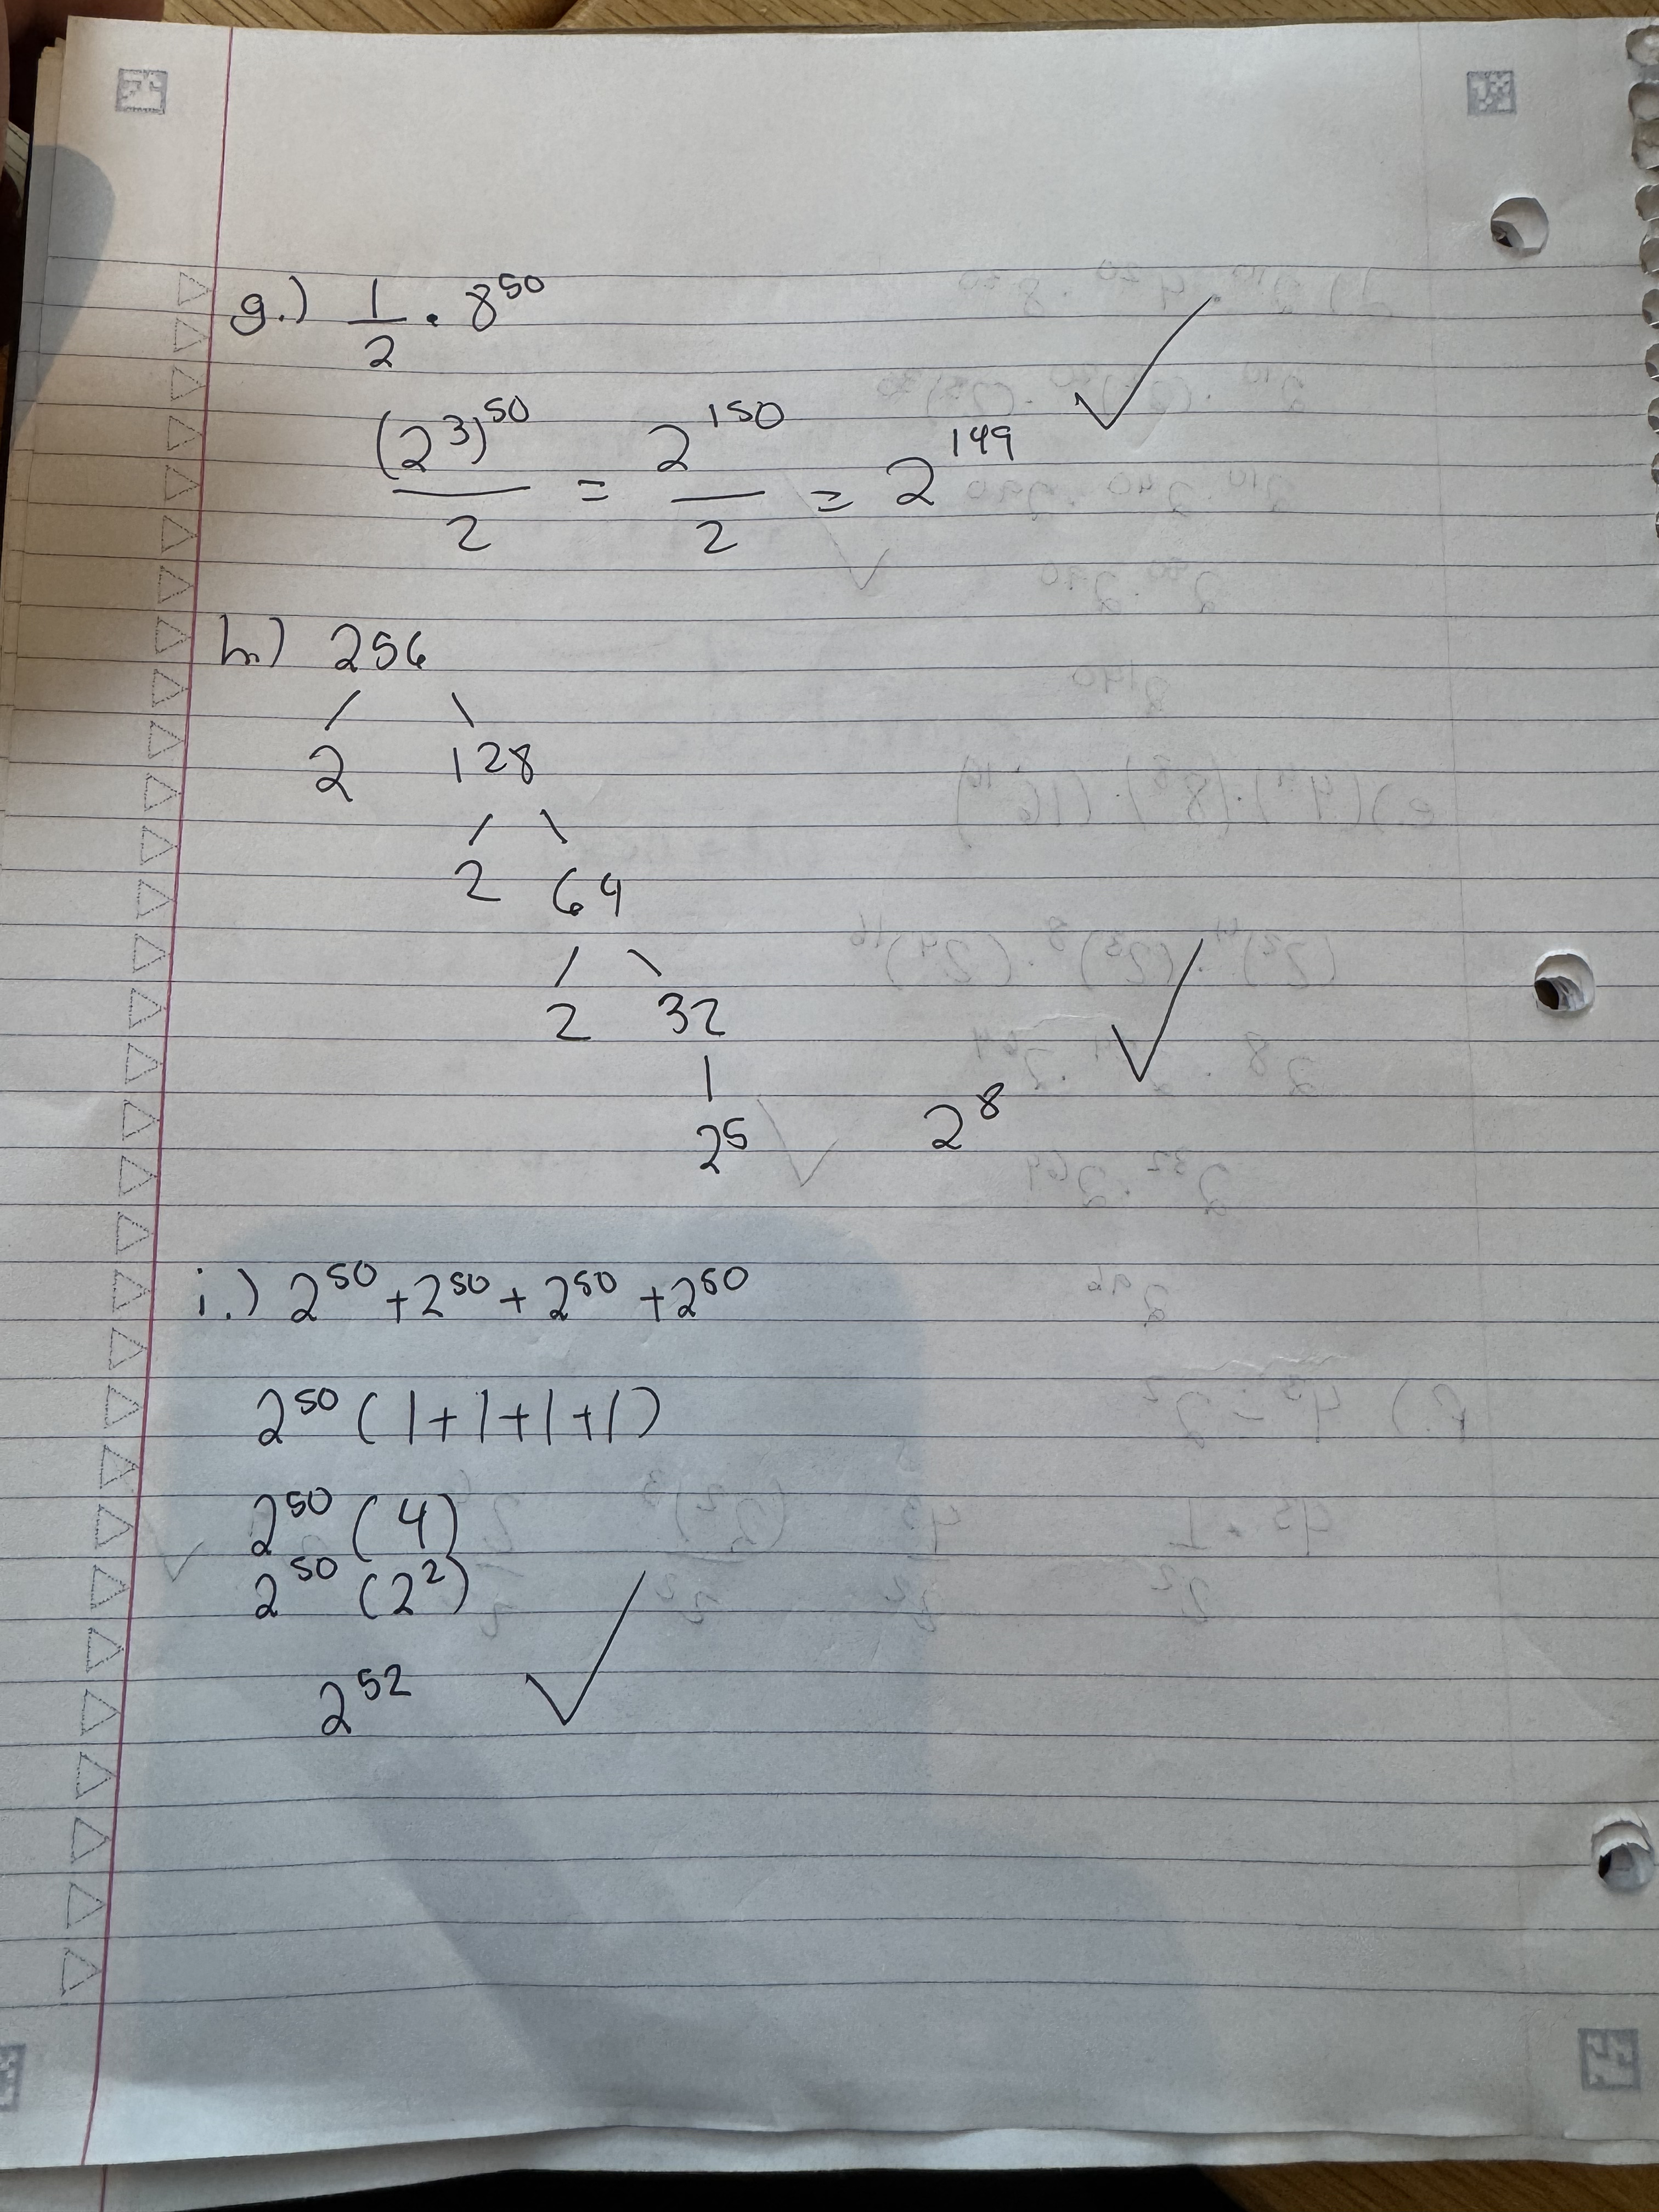 g.) 1/2 · 8^50
(2^3)^50/2 = 2^150/2 = 2^149 ✓
h.) 256
2 128
2 64
2 32
2^5 2^8 ✓
i.) 2^50 + 2^50 + 2^50 + 2^50
2^50 (1+1+1+1)
2^50 (4)
2^50 (2^2)
2^52 ✓